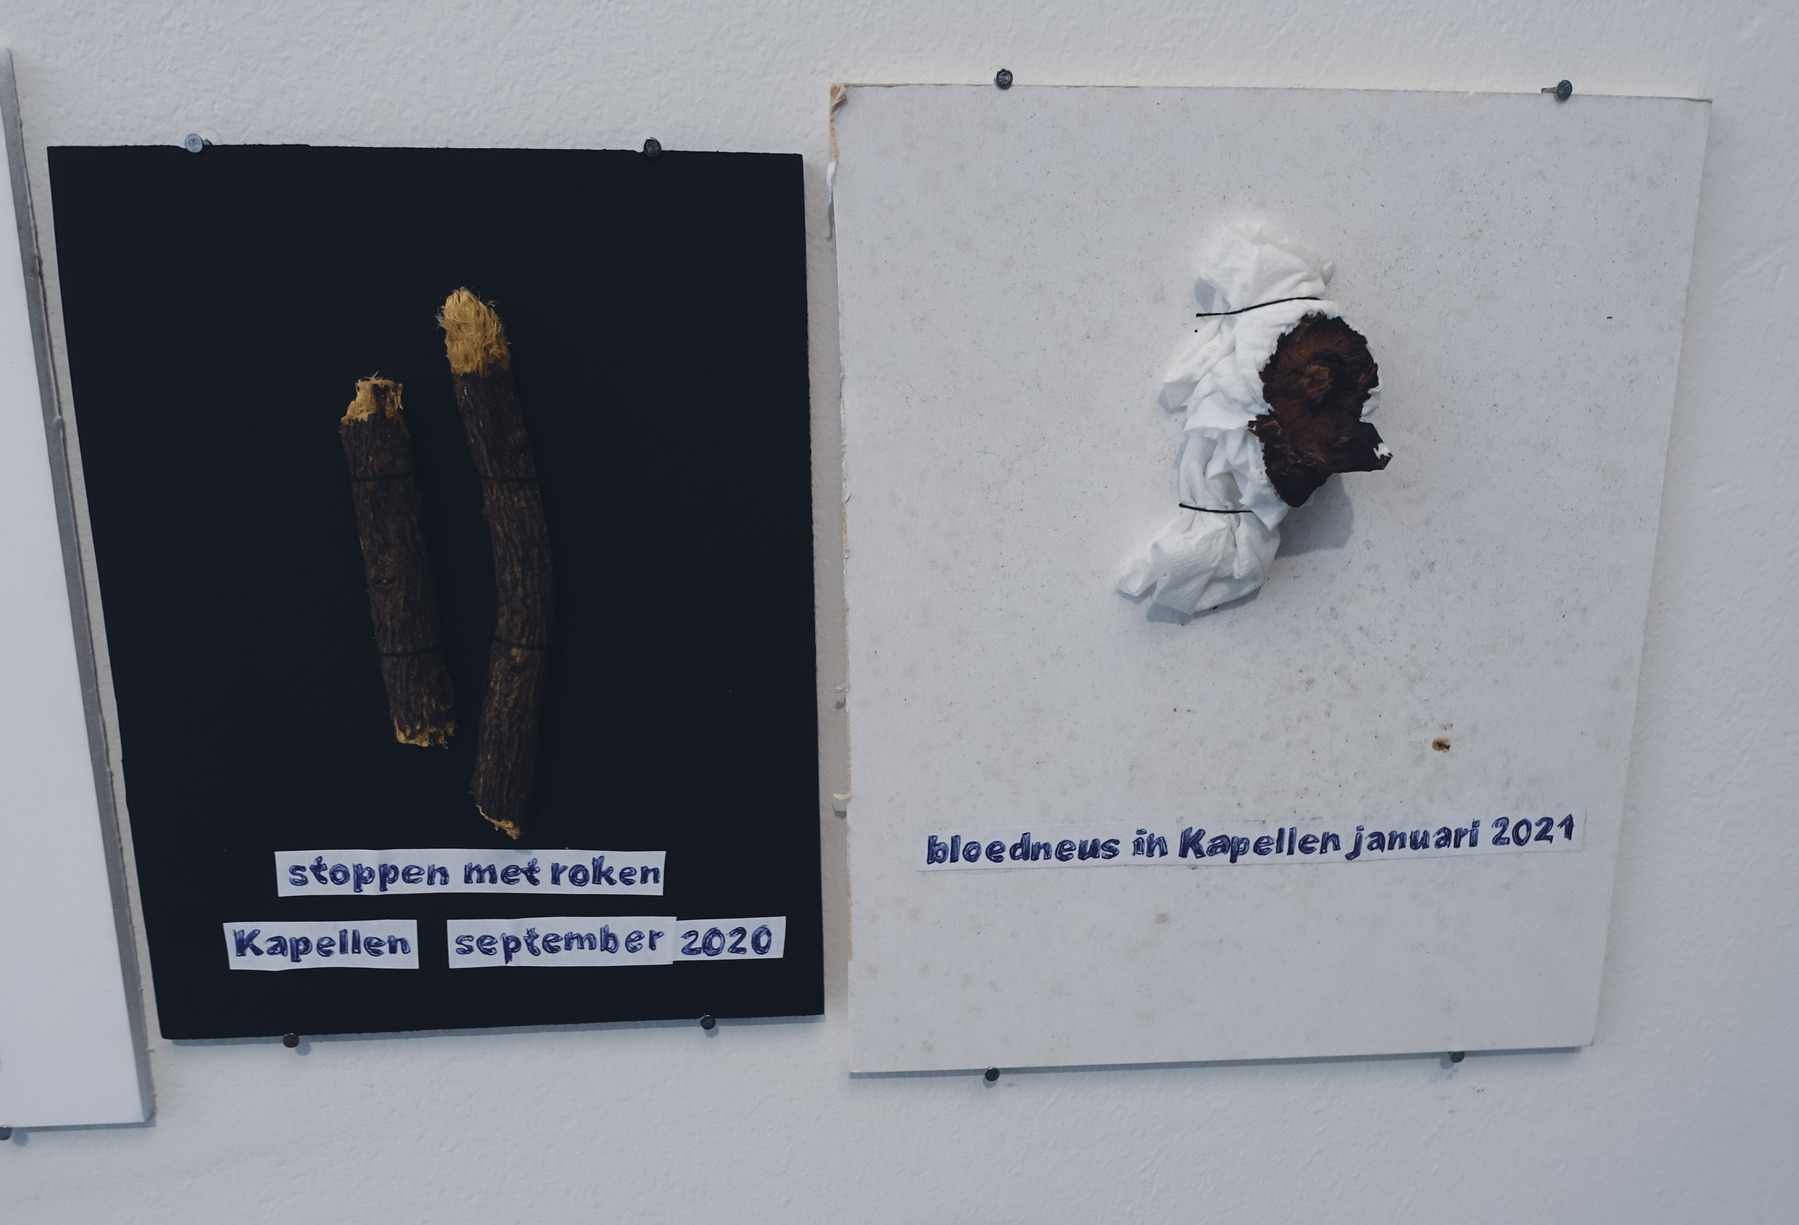 stoppen met roken
Kapellen september 2020
bloedneus in Kapellen januari 2021